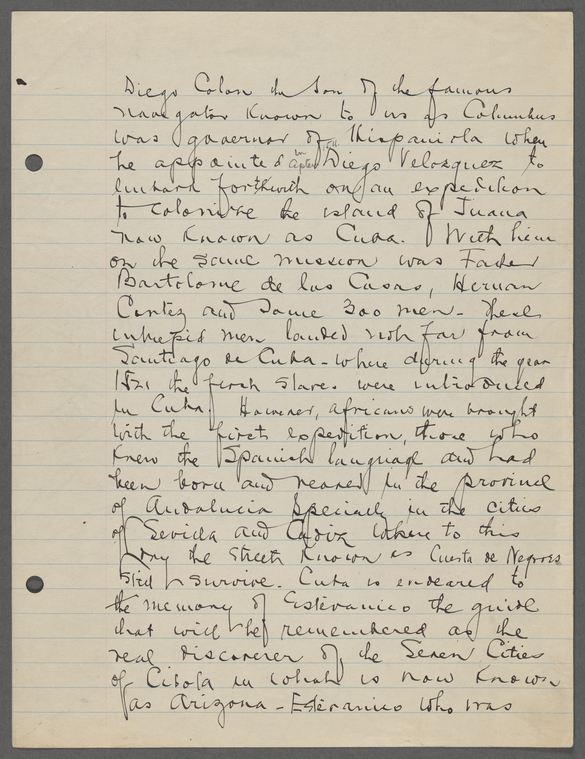 Diego Colon the son of the famous
navegator known to us as Columbus
was governor of Hispaniola when
he appointed in 1511 Diego Velasquez to
embark forthwith on an expedition
to colonize the island of Juana
now known as Cuba. With him
on the same mission was Father
Bartolome de las Casas, Hernan
Cortez and some 300 men - These
intrepid men landed not far from
Santiago de Cuba - where during the year
1521 the first slaves were introduced
in Cuba. However, africans were brought
with the first expedition, those who
knew the Spanish language and had
been born and reared in the province
of Andalucia specially in the cities
of Sevilla and Cadiz where to this
day the street known as Cuesta de Negroes
still survive. Cuba is endeared to
the memory of Estevanico the guide
that will be remembered as the
real discoverer of the Seven Cities
of Cibola in what is now known
as Arizona - Estevanico who was